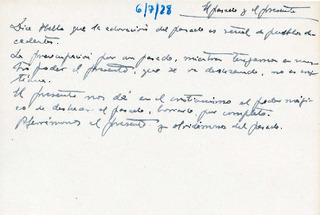 6/7/28
El pasado y el presente
Dice Hello que la adoración del pasado es señal de pueblos de-
cadentes.
La preocupación por un pasado, mientras tengamos en nues-
tro poder el presente, que se va deshaciendo, no es cris-
tiana.
El presente nos dá en el cristianismo el poder mági-
co de deshacer el pasado, borrarlo por completo.
Preferimos el presente y olvidémonos del pasado.